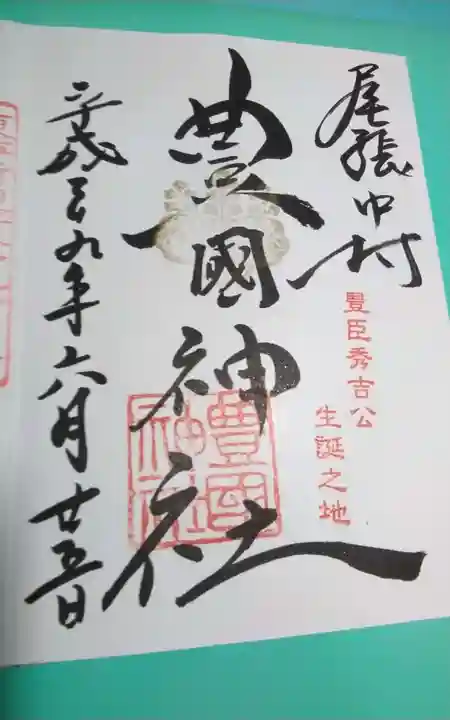 尾張中村
豊臣秀吉公
生誕之地
豊國神社
豊國神社
平成二十九年六月廿五日